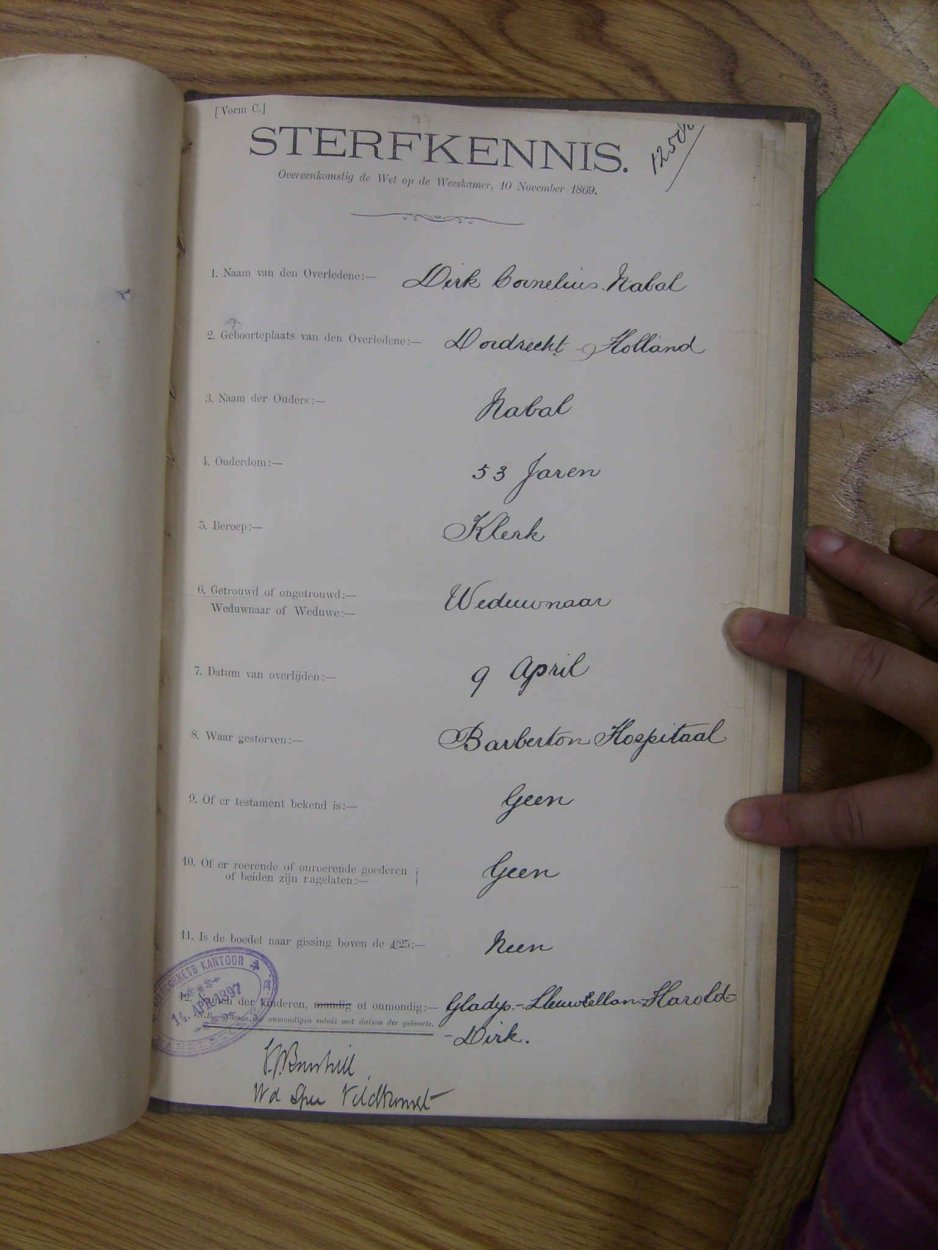 [Vorm C.]
STERFKENNIS.
Overeenkomstig de Wet op de Weeskamer, 10 November 1869.
1. Naam van den Overledene:— Dirk Cornelius Nabal
2. Geboorteplaats van den Overledene:— Dordrecht - Holland
3. Naam der Ouders:— Nabal
4. Ouderdom:— 53 Jaren
5. Beroep:— Klerk
6. Getrouwd of ongetrouwd:—
Weduwnaar of Weduwe:— Weduwnaar
7. Datum van overlijden:— 9 April
8. Waar gestorven:— Barberton Hospitaal
9. Of er testament bekend is:— Geen
10. Of er roerende of onroerende goederen
of beiden zijn nagelaten:— Geen
11. Is de boedel naar gissing boven de £25:— Neen
der Kinderen, mondig of onmondig:— Gladys - Lleuwellan - Harold -
onmondigen voluit met datum der geboorte.
- Dirk.
KANTOOR
14. APR. 1897
Wd Veldkornet